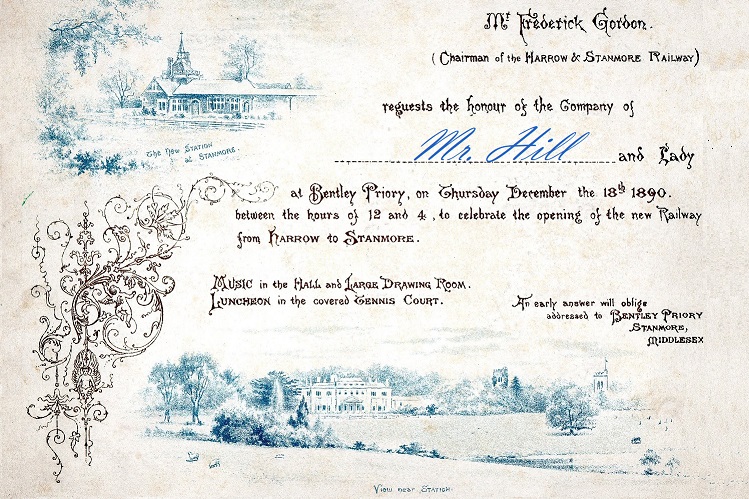 Mr Frederick Gordon.
(Chairman of the Harrow & Stanmore Railway)
requests the honour of the Company of
Mr. Hill and Lady
at Bentley Priory, on Thursday December the 18th 1890.
between the hours of 12 and 4, to celebrate the opening of the new Railway
from Harrow to Stanmore.
The New Station
at Stanmore.
Music in the Hall and Large Drawing Room.
Luncheon in the covered Tennis Court.
An early answer will oblige
addressed to Bentley Priory
Stanmore,
Middlesex
View near Station.